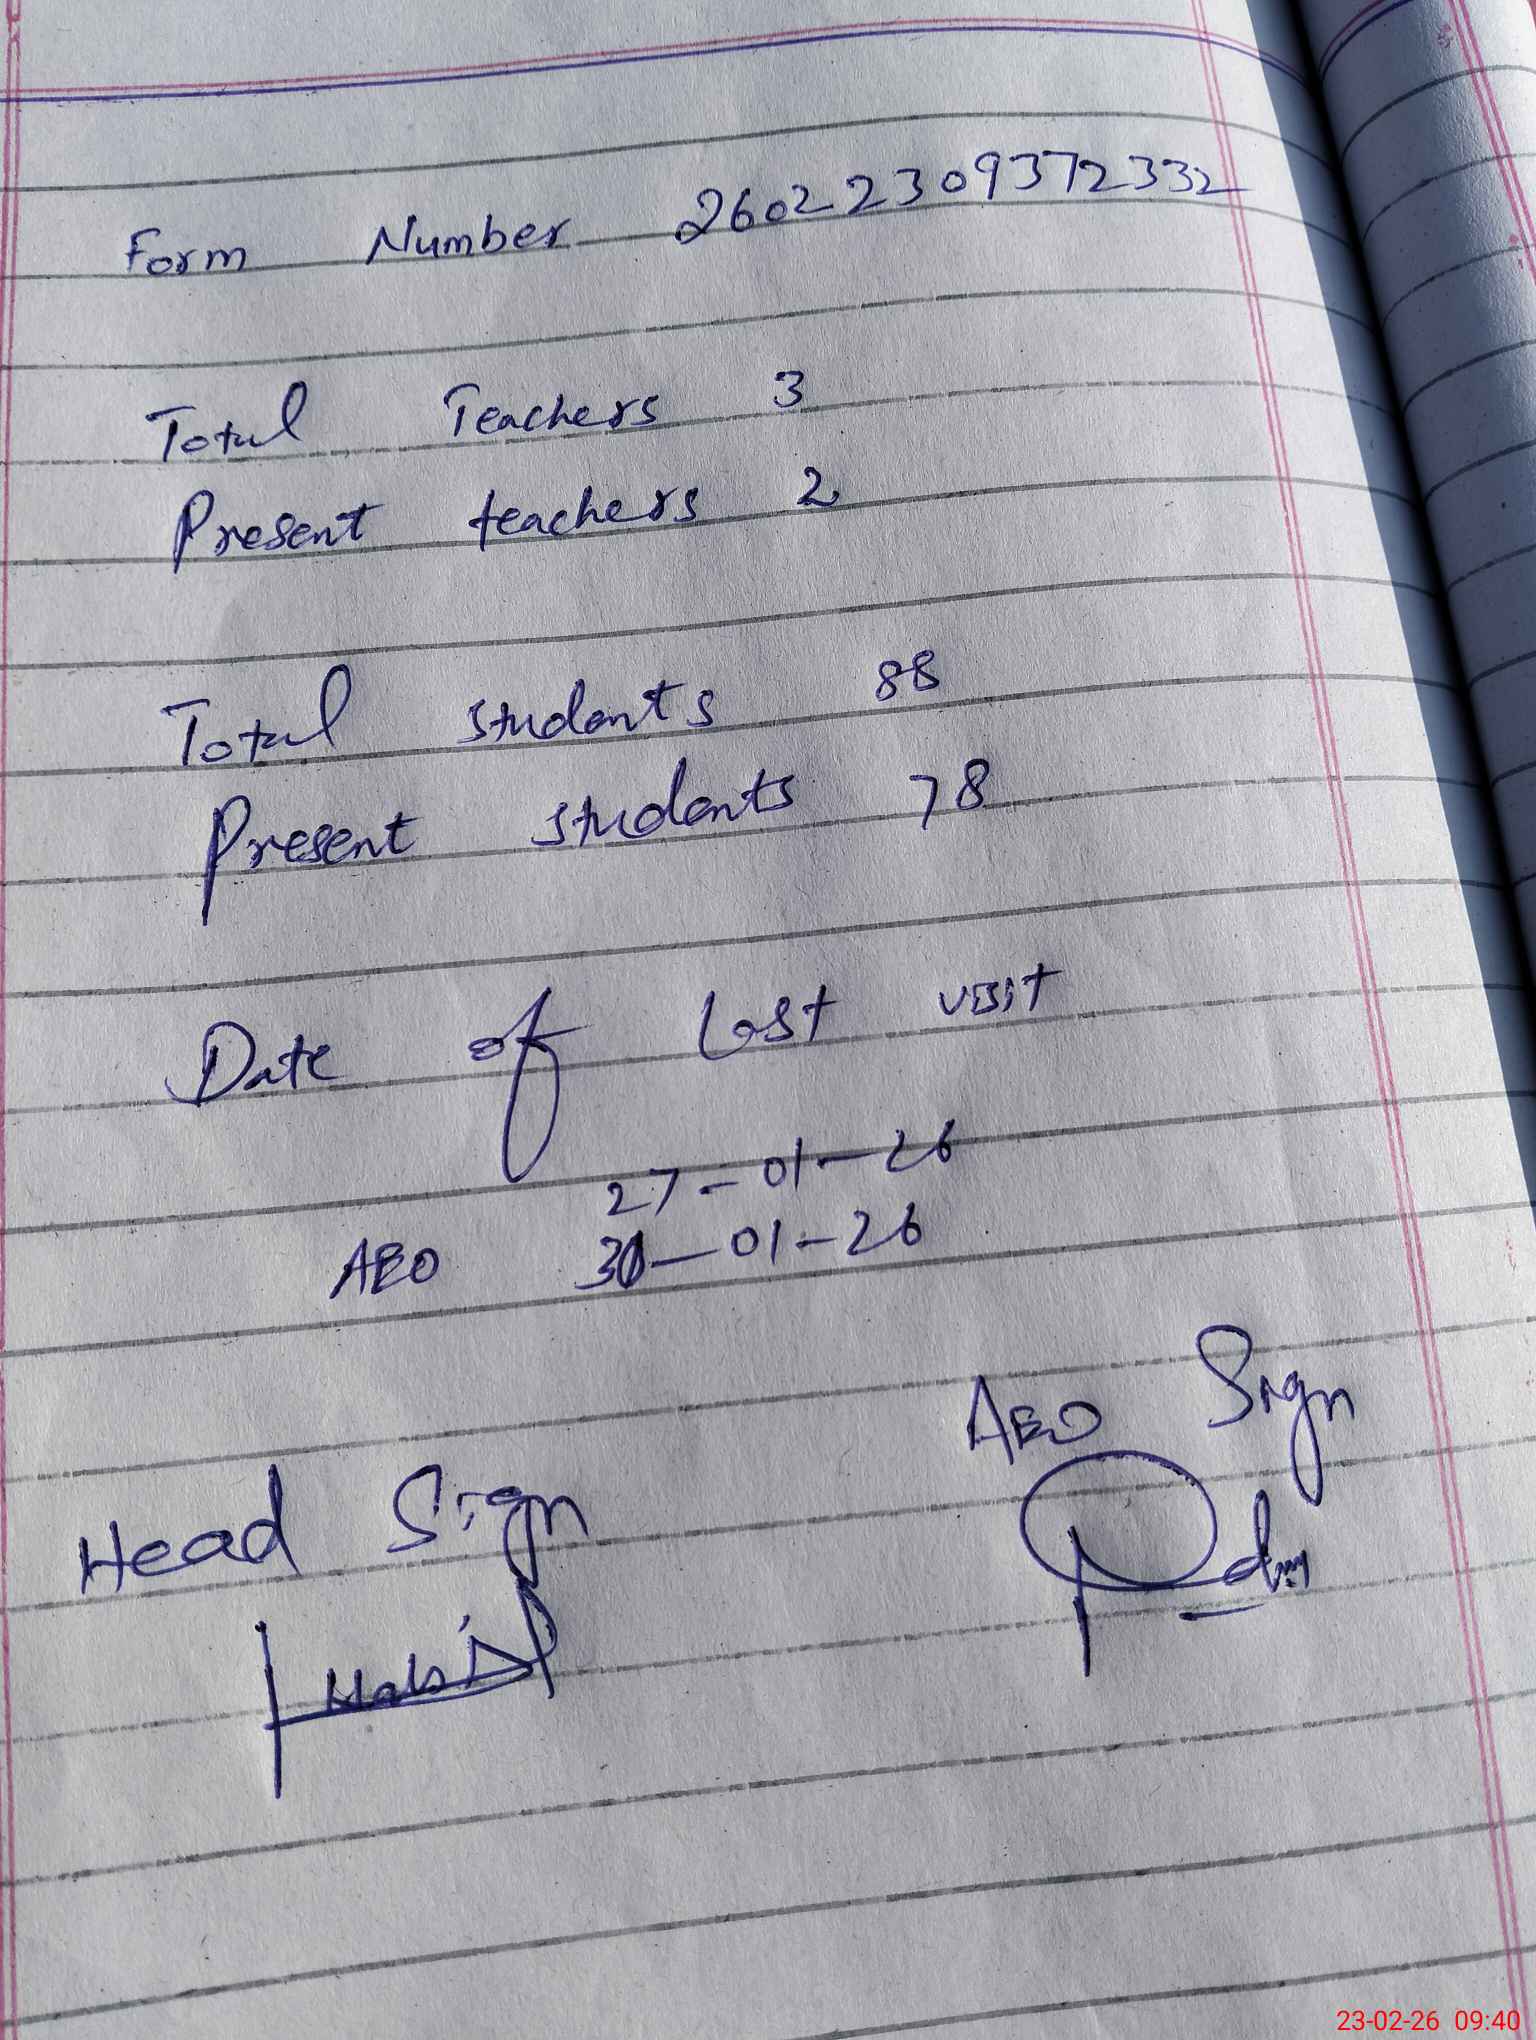 Form Number 26022309372332
Total Teachers 3
Present teachers 2
Total students 88
Present students 78
Date of Last visit
27-01-26
AEO -01-26
AEO Sign
Head Sign
23-02-26 09:40